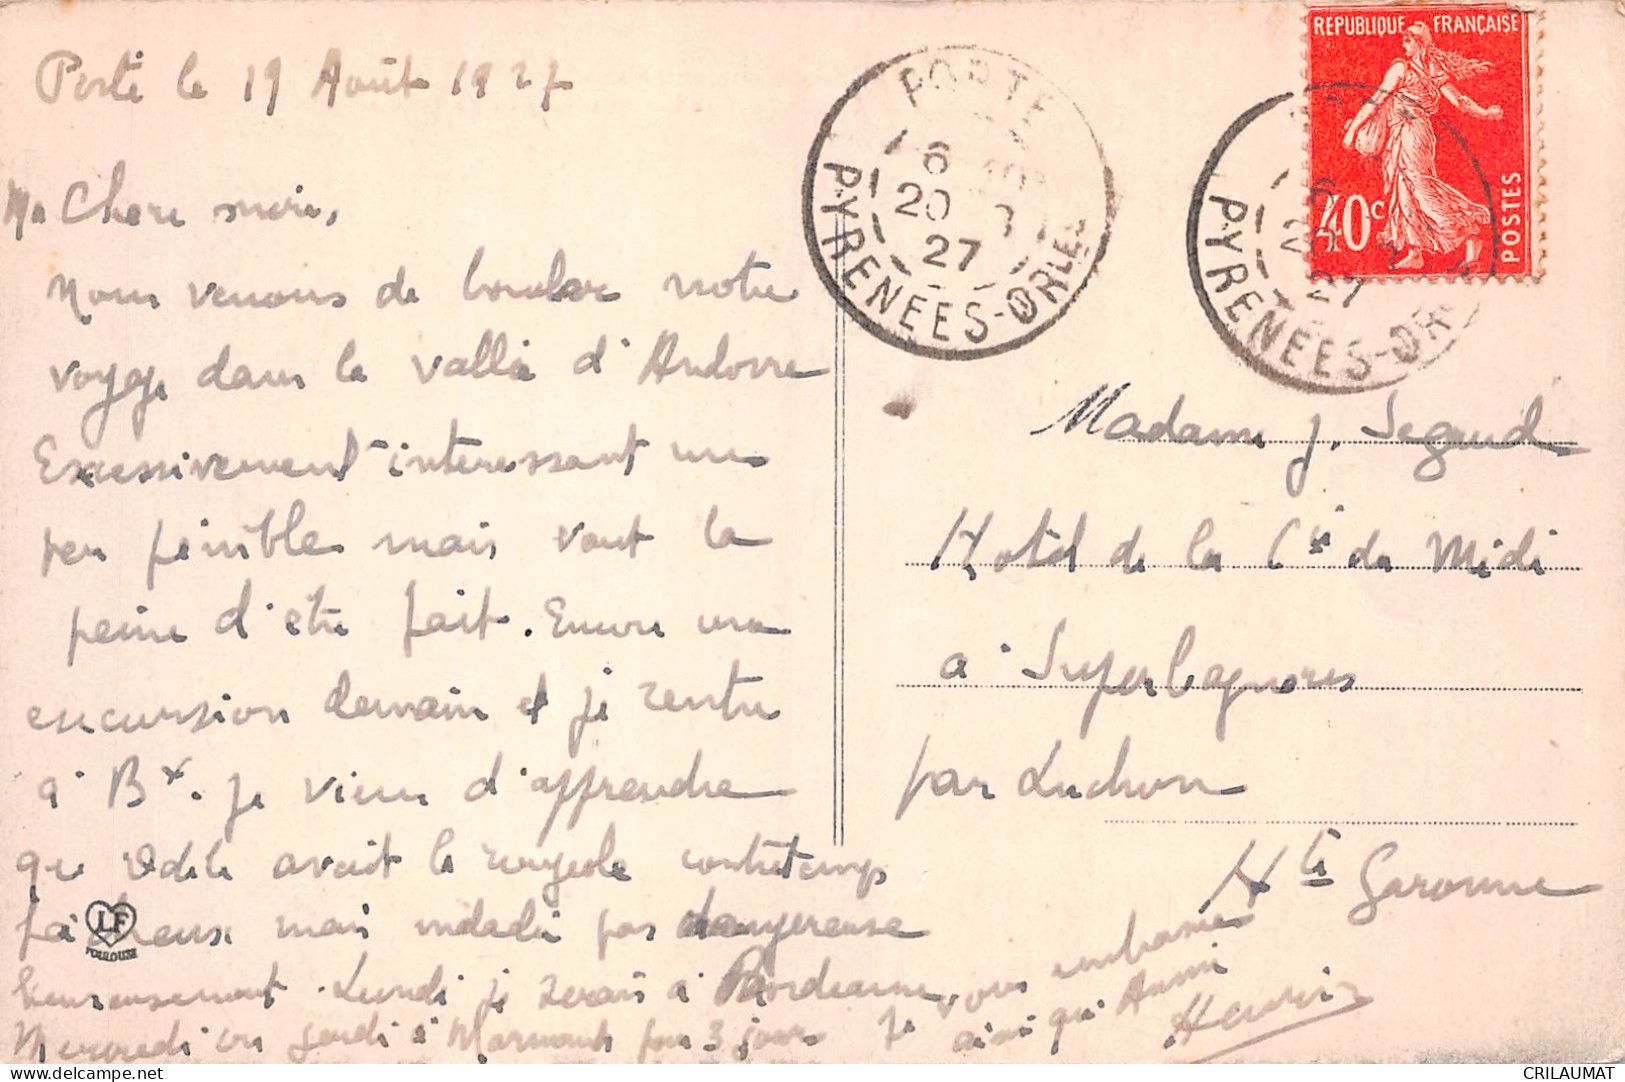 Porté le 19 Août 1927
Ma Chere mère,
Nous venons de boucler notre
voyage dans la vallée d'Andorre
Excessivement intéressant un
peu penible mais vaut la
peine d'être fait. Encore une
excursion demain et je rentre
à Bx. Je viens d'apprendre
que Odile avait la rougeole contretemps
facheux mais maladie pas dangereuse
heureusement. Lundi je serais à Bordeaux
Mercredi ou Jeudi à Marmande pour 3 jours Je vous embrasse
ainsi qu'Annie
Henri
LF
TOULOUSE
PORTE
6
20 8
27
PYRENEES-ORLES
REPUBLIQUE FRANÇAISE
40c
POSTES
PYRENEES-OR
27
Madame J. Segaud
Hotel de la Cie du Midi
à Superbagnères
par Luchon
Hte Garonne
CRILAUMAT